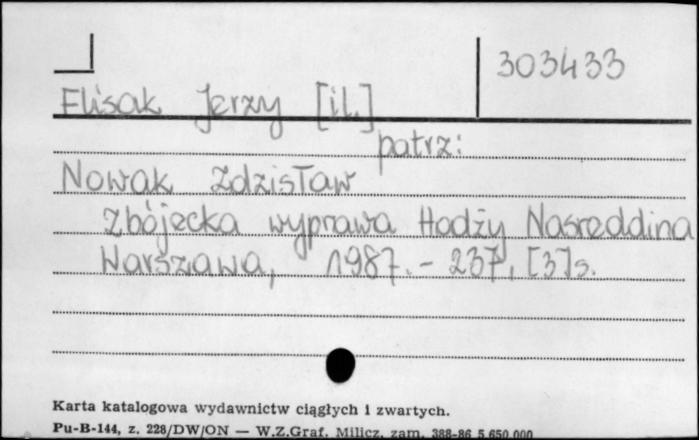 303433
Elisak Jerzy [il.]
patrz:
Nowak Zdzisław
Zbójecka wyprawa Hodży Nasreddina
Warszawa, 1987. - 237, [3]s.
Karta katalogowa wydawnictw ciągłych i zwartych.
Pu-B-144, z. 228/DW/ON — W.Z.Graf. Milicz, zam. 388-86 5.650.000